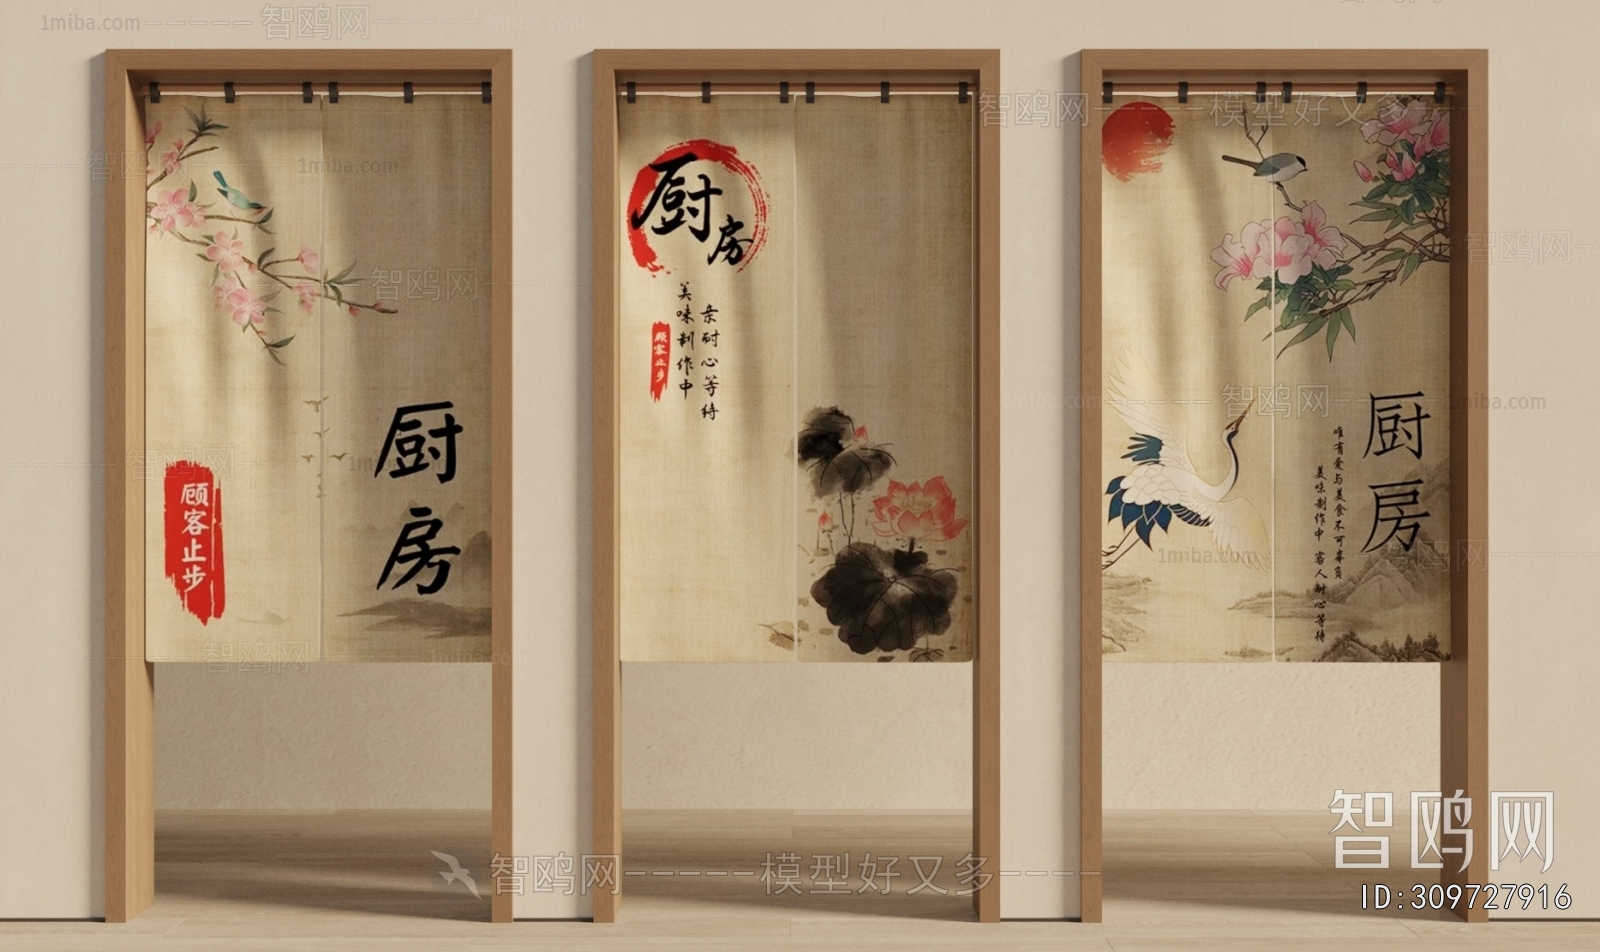 厨房
顾客止步
厨房
亲耐心等待
美味制作中
顾客止步
厨房
唯有爱与美食不可辜负
美味制作中 客人耐心等待
智鸥网
ID:309727916
智鸥网-----模型好又多----
1miba.com